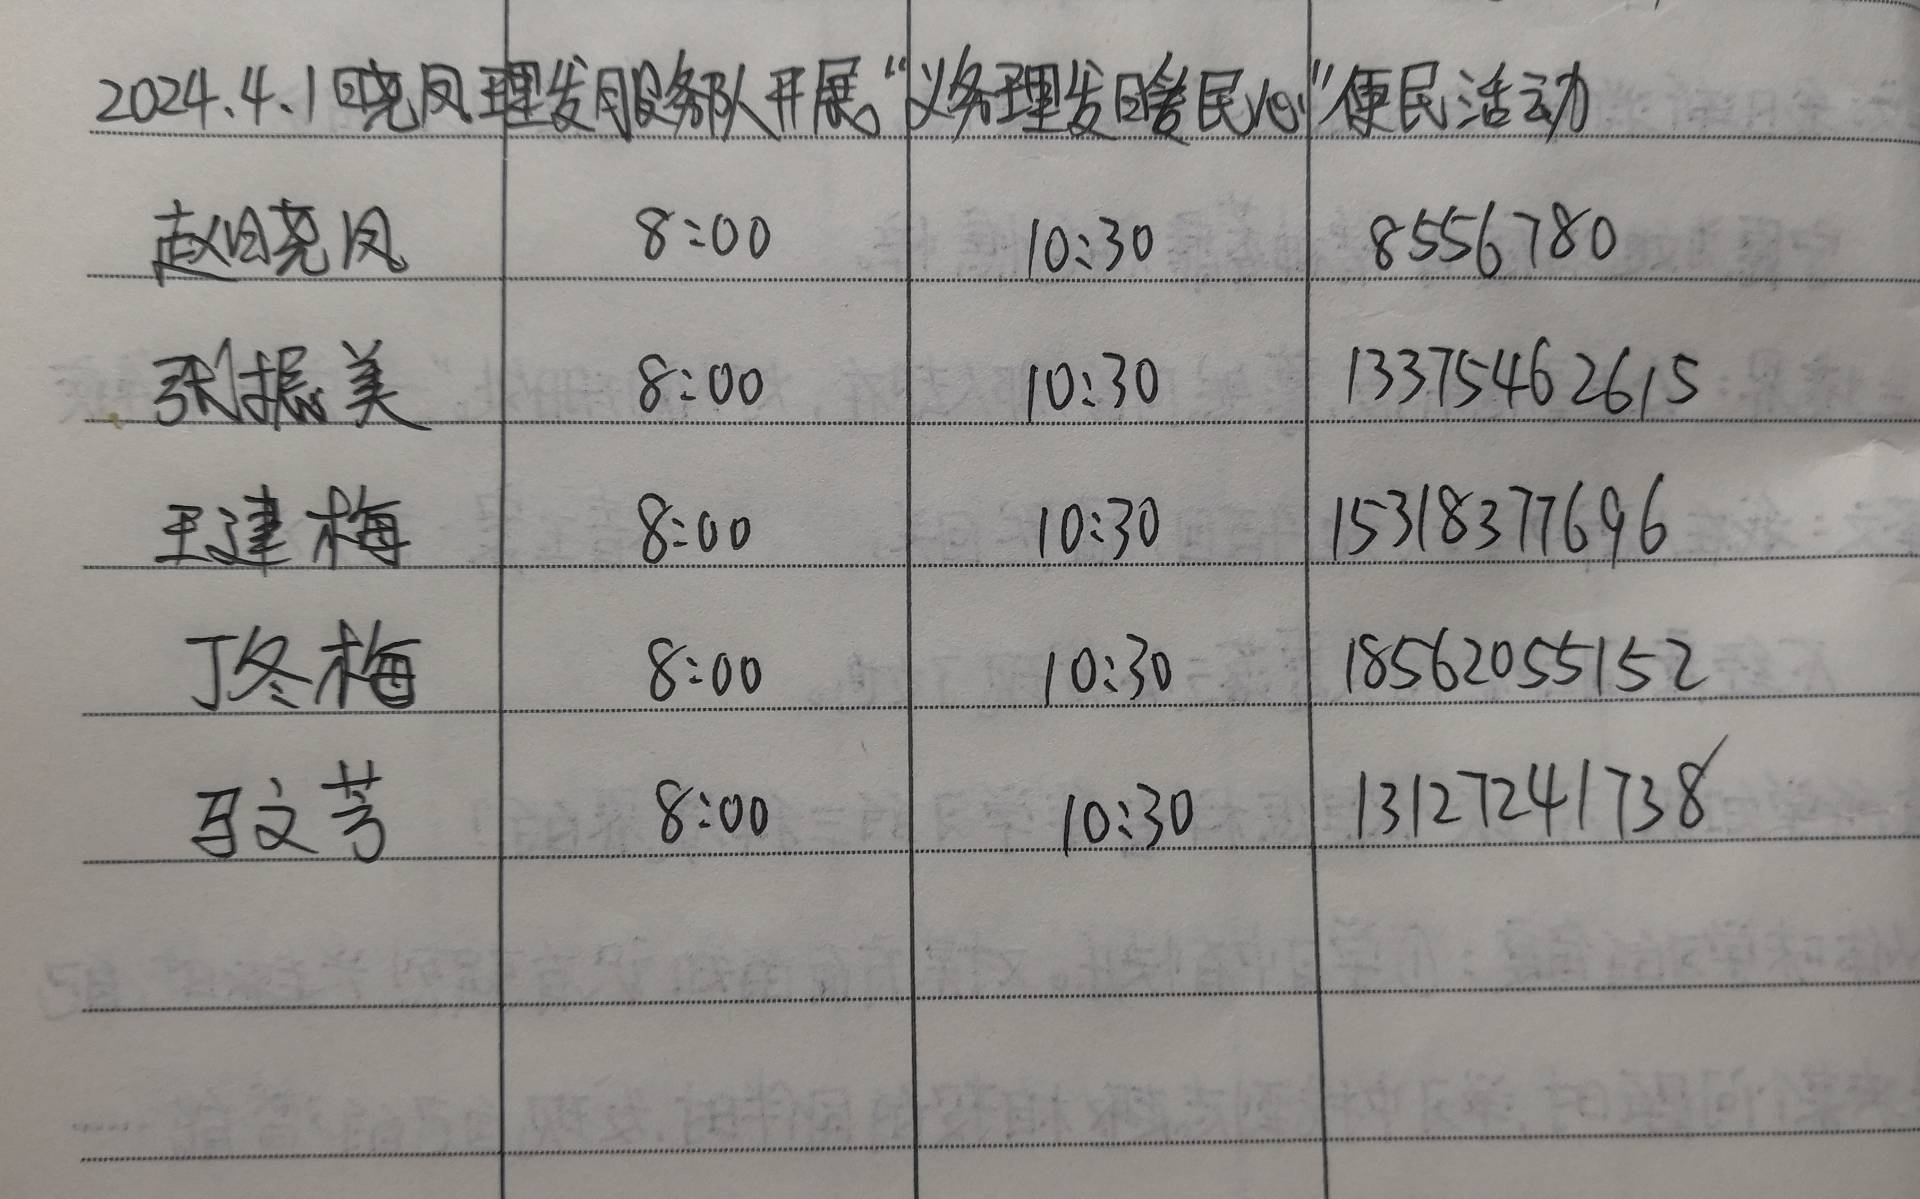 2024.4.1日晓凤理发服务队开展"义务理发暖民心"便民活动
赵晓凤 8:00 10:30 8556780
张振美 8:00 10:30 13375462615
王建梅 8:00 10:30 15318377696
丁冬梅 8:00 10:30 18562055152
马文芳 8:00 10:30 13127241738